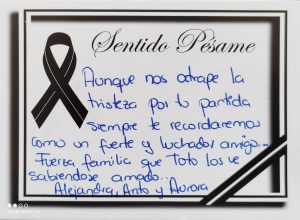 Sentido Pésame
Aunque nos atrape la
tristeza por tu partida
siempre te recordaremos
como un fuerte y luchador amigo...
Fuerza familia que Toto los ve
sabiendose amado...
Alejandra, Anto y Aurora